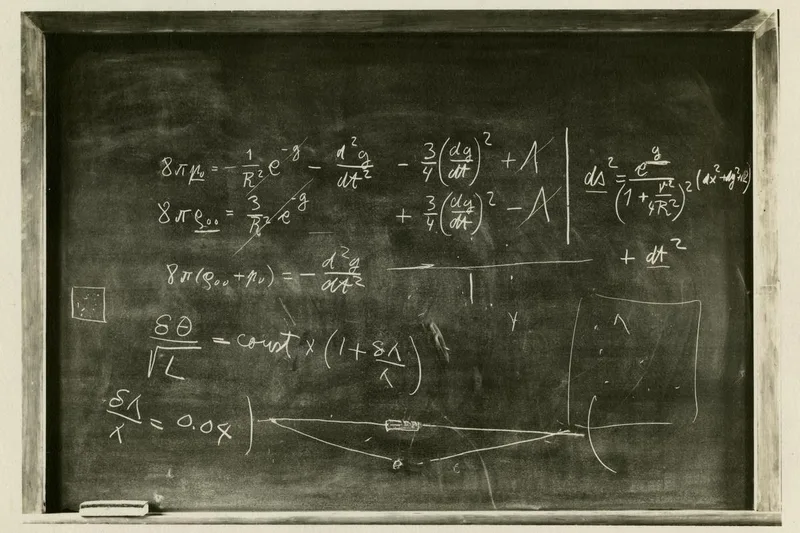 8πp₀ = - 1/R² e^-g - d²g/dt² - 3/4 (dg/dt)² + Λ
8πρ₀₀ = 3/R² e^-g + 3/4 (dg/dt)² - Λ
ds² = e^g/(1 + r²/4R²)² (dx²+dy²+dz²)
+ dt²
8π(ρ₀₀+p₀) = - d²g/dt²
δθ/√L = const × (1 + δλ/λ)
δλ/λ = 0.0